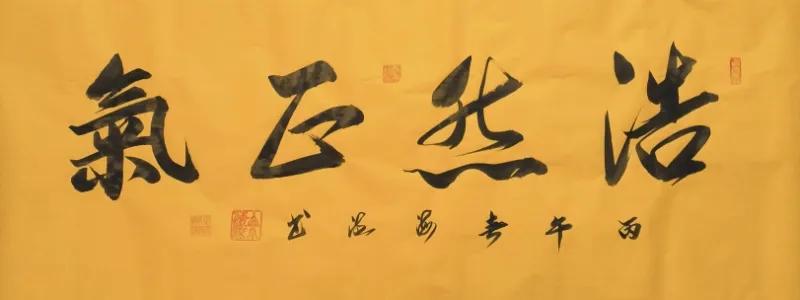 浩然正氣
丙午春海澄书